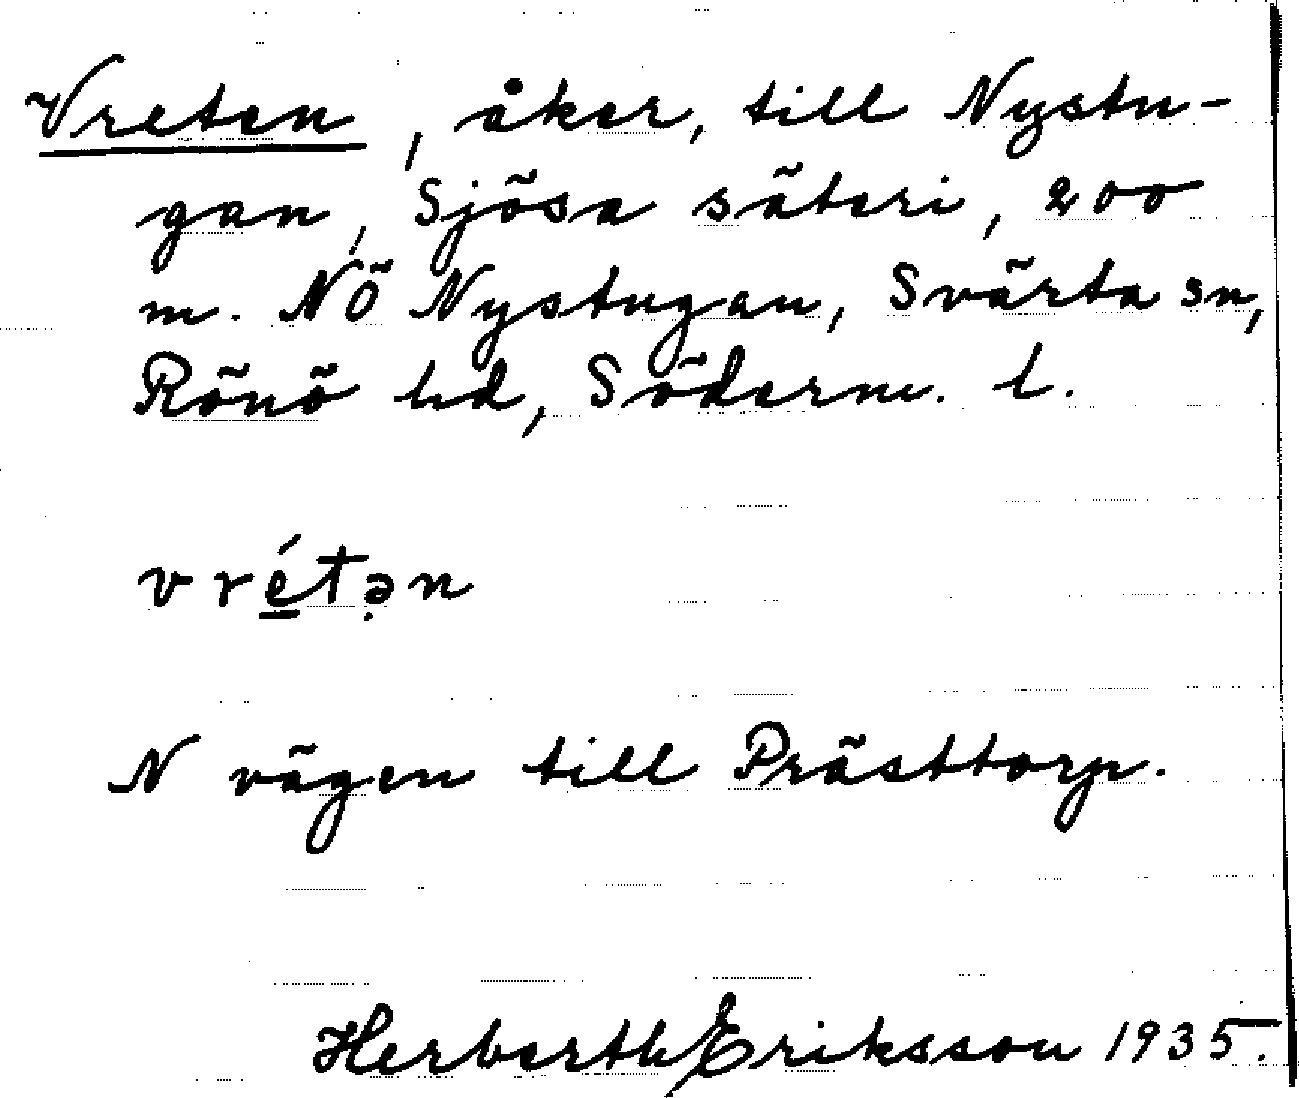 Vreten, åker, till Nystu-
gan, Sjösa säteri, 200
m. NÖ Nystugan, Svärta sn,
Rönö hd, Söderm. l.
vré̲tə̣n
N vägen till Prästtorp.
Herberth Eriksson 1935.